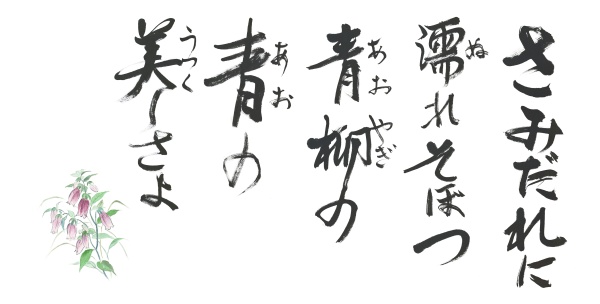 さみだれに
濡れそぼつ
青柳の
青の
美しさよ
ぬ
あお
やぎ
あお
うつく